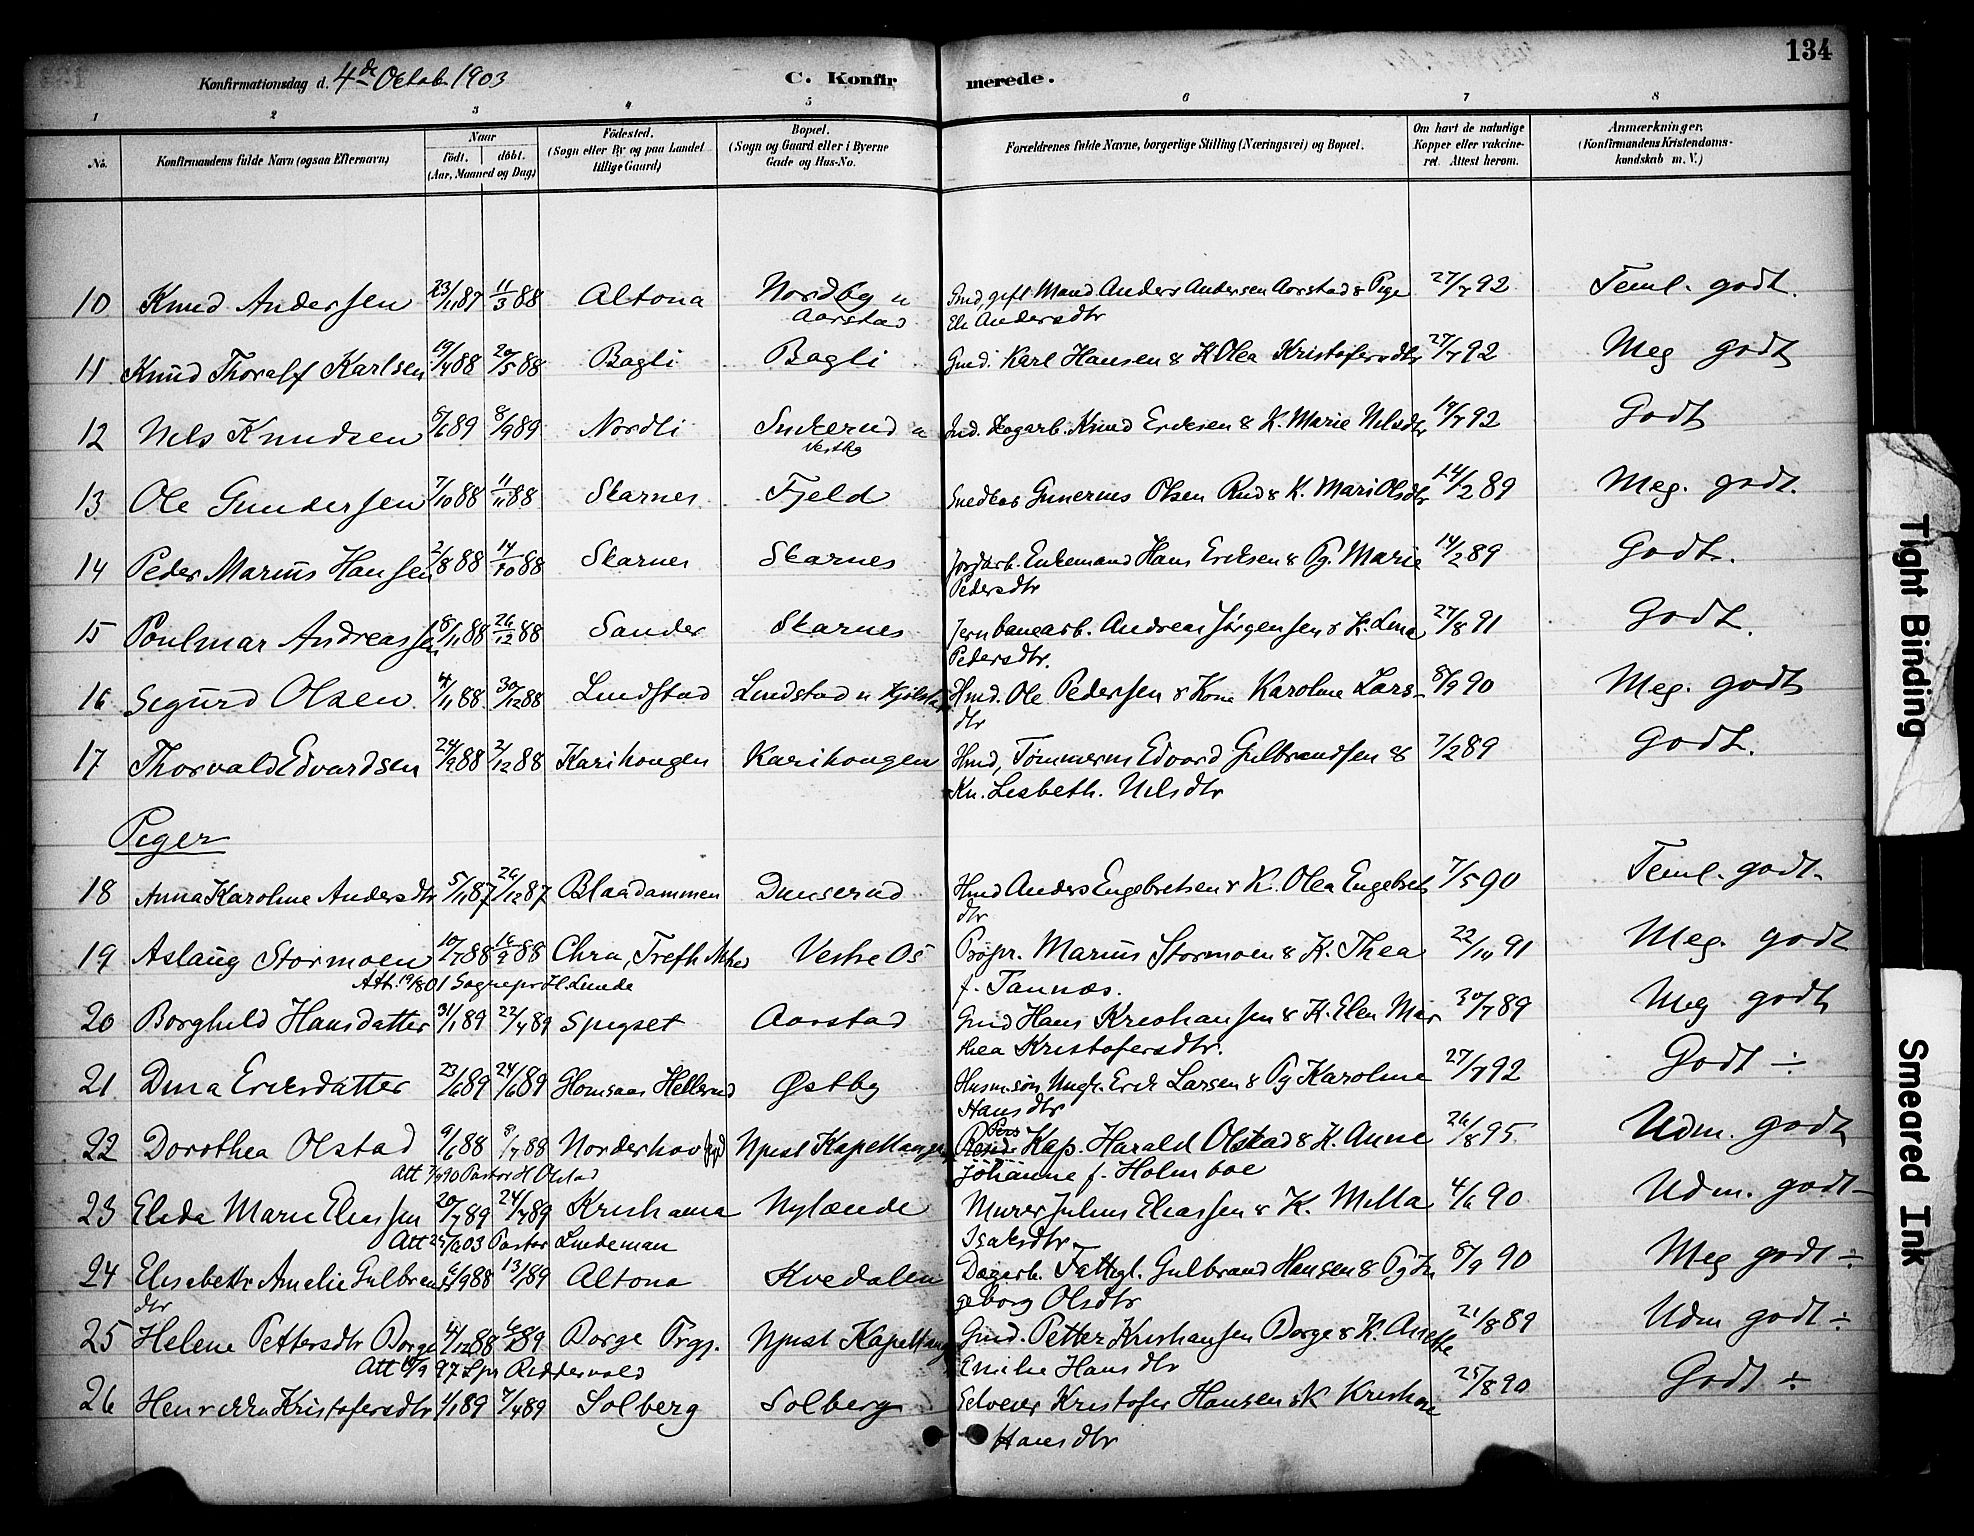 134
Konfirmationsdag d. 4de Octob. 1903 C. Konfirmerede.
1 2 3 4 5 6 7 8
No. Konfirmandens fulde Navn (ogsaa Efternavn) Naar födt. döbt. (Aar, Maaned og Dag) Födested. (Sogn eller By og paa Landet tillige Gaard) Bopæl. (Sogn og Gaard eller i Byerne Gade og Hus-No. Forældrenes fulde Navne, borgerlige Stilling (Næringsvei) og Bopæl. Om havt de naturlige Kopper eller vakcineret. Attest herom. Anmærkninger. (Konfirmandens Kristendomskundskab m. V.)
10 Knud Andersen 23/11 87 11/3 88 Altona Nordby u Gmd, gift Mand Anders Andersen Aarstad & Pige 27/7 92 Teml. godt.
Aarstad Eli Andersdtr
11 Knud Thoralf Karlsen 19/4 88 20/5 88 Bagli Bagli Gmd. Karl Hansen & K Olea Kristofersdtr 27/7 92 Meg godt
12 Nils Knudsen 8/6 89 8/9 89 Nordli Snekerud u Ind. Skogarb. Knud Eriksen & K. Marie Nilsdtr 19/7 92 Godt
Vestby
13 Ole Gundersen 7/10 88 11/11 88 Skarnes Fjeld Gunerius Olsen Rud & K. Mari Olsdtr 14/2 89 Meg. godt.
14 Peder Marius Hansen 2/8 88 14/10 88 Skarnes Skarnes Jordarb. Enkemand Hans Eriksen & Pg. Marie 14/2 89 Godt.
Pedersdtr
15 Poulmar Andreassen 8/11 88 26/12 88 Sander Skarnes Jernbanearb. Andreas Jørgensen & K. Lina 27/8 91 Godt.
Pedersdtr.
16 Sigurd Olsen 4/11 88 30/12 88 Lundstad Lundstad u Hmd. Ole Pedersen & Kone Karoline Lars- 8/9 90 Meg. godt
dtr
17 Thorvald Edvardsen 24/9 88 2/12 88 Karihougen Karihougen Hmd, Tømmerm Edvard Gulbrandsen & 7/2 89 Godt.
Kn. Lisbeth. Nilsdtr
Piger
18 Anna Karoline Andersdtr 5/11 87 26/12 87 Blaadammen Dunserud Hmd Anders Engebretsen & K. Olea Engebrets 7/5 90 Teml. godt.
dtr
19 Aslaug Stormoen 10/7 88 16/9 88 Chra, Trefh Mhed Vestre Os Propr. Marius Stormoen & K. Thea 22/10 91 Meg. godt
Att. 19/8 01 Sognepr H. Lunde f. Tannæs.
20 Borghild Hansdatter 31/1 89 22/4 89 Spigset Aarstad Gmd Hans Kristiansen & K. Elen Mar 30/7 89 Meg godt
thea Kristofersdtr.
21 Dina Eriksdatter 23/6 89 24/6 89 Homsaas Hellerud Østby Husmsøn Ungk. Erik Larsen & Pg Karoline 27/7 92 Godt ÷
Hansdtr
22 Dorothea Olstad 9/6 88 8/7 88 Norderhov Npist Kapellangaard Pers. Kap. Harald Olstad & K. Anne 26/8 95 Udm. godt
Att 7/9 90 Pastor H Olstad Johanne f. Holmboe
23 Elida Marie Eliassen 20/7 89 24/7 89 Kristiania Nylænde Murer Julius Eliassen & K. Milla 4/6 90 Udm. godt
Att 25/6 03 Pastor Lindeman Isaksdtr
24 Elisabeth Amelie Gulbrans 6/9 88 13/1 89 Altona Kvedalen Dagarb. Fattigl. Gulbrand Hansen & Pg In 8/9 90 Meg godt ÷
dtr geborg Olsdtr
25 Helene Pettersdtr Borge 4/12 88 6/2 89 Borge Prgj. Npist Kapellang Gmd. Petter Kristiansen Borge & K. Anette 21/8 89 Udm godt ÷
Att 10/9 97 Spr Riddervold Emilie Hansdtr
26 Henrikka Kristofersdtr 1/1 89 7/4 89 Solberg Solberg Selveier Kristofer Hansen & K Kristiane 25/8 90 Godt ÷
Hansdtr
Tight Binding
Smeared Ink